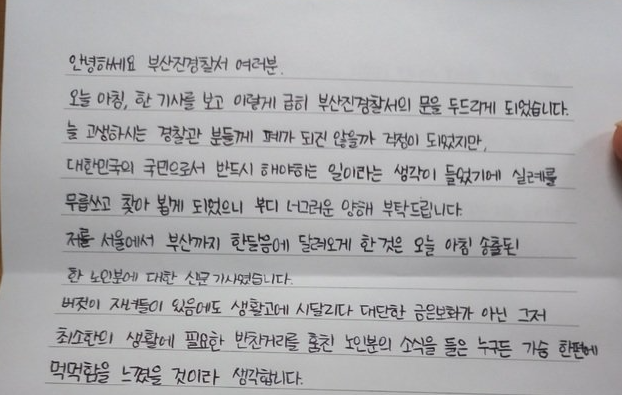 안녕하세요 부산진경찰서 여러분.
오늘 아침, 한 기사를 보고 이렇게 급히 부산진경찰서의 문을 두드리게 되었습니다.
늘 고생하시는 경찰관 분들께 폐가 되진 않을까 걱정이 되었지만,
대한민국의 국민으로서 반드시 해야하는 일이라는 생각이 들었기에 실례를
무릅쓰고 찾아 뵙게 되었으니 부디 너그러운 양해 부탁드립니다.
저를 서울에서 부산까지 한달음에 달려오게 한 것은 오늘 아침 송출된
한 노인분에 대한 신문기사였습니다.
버젓이 자녀들이 있음에도 생활고에 시달리다 대단한 금은보화가 아닌 그저
최소한의 생활에 필요한 반찬거리를 훔친 노인분의 소식을 들은 누구든 가슴 한편에
먹먹함을 느꼈을 것이라 생각합니다.